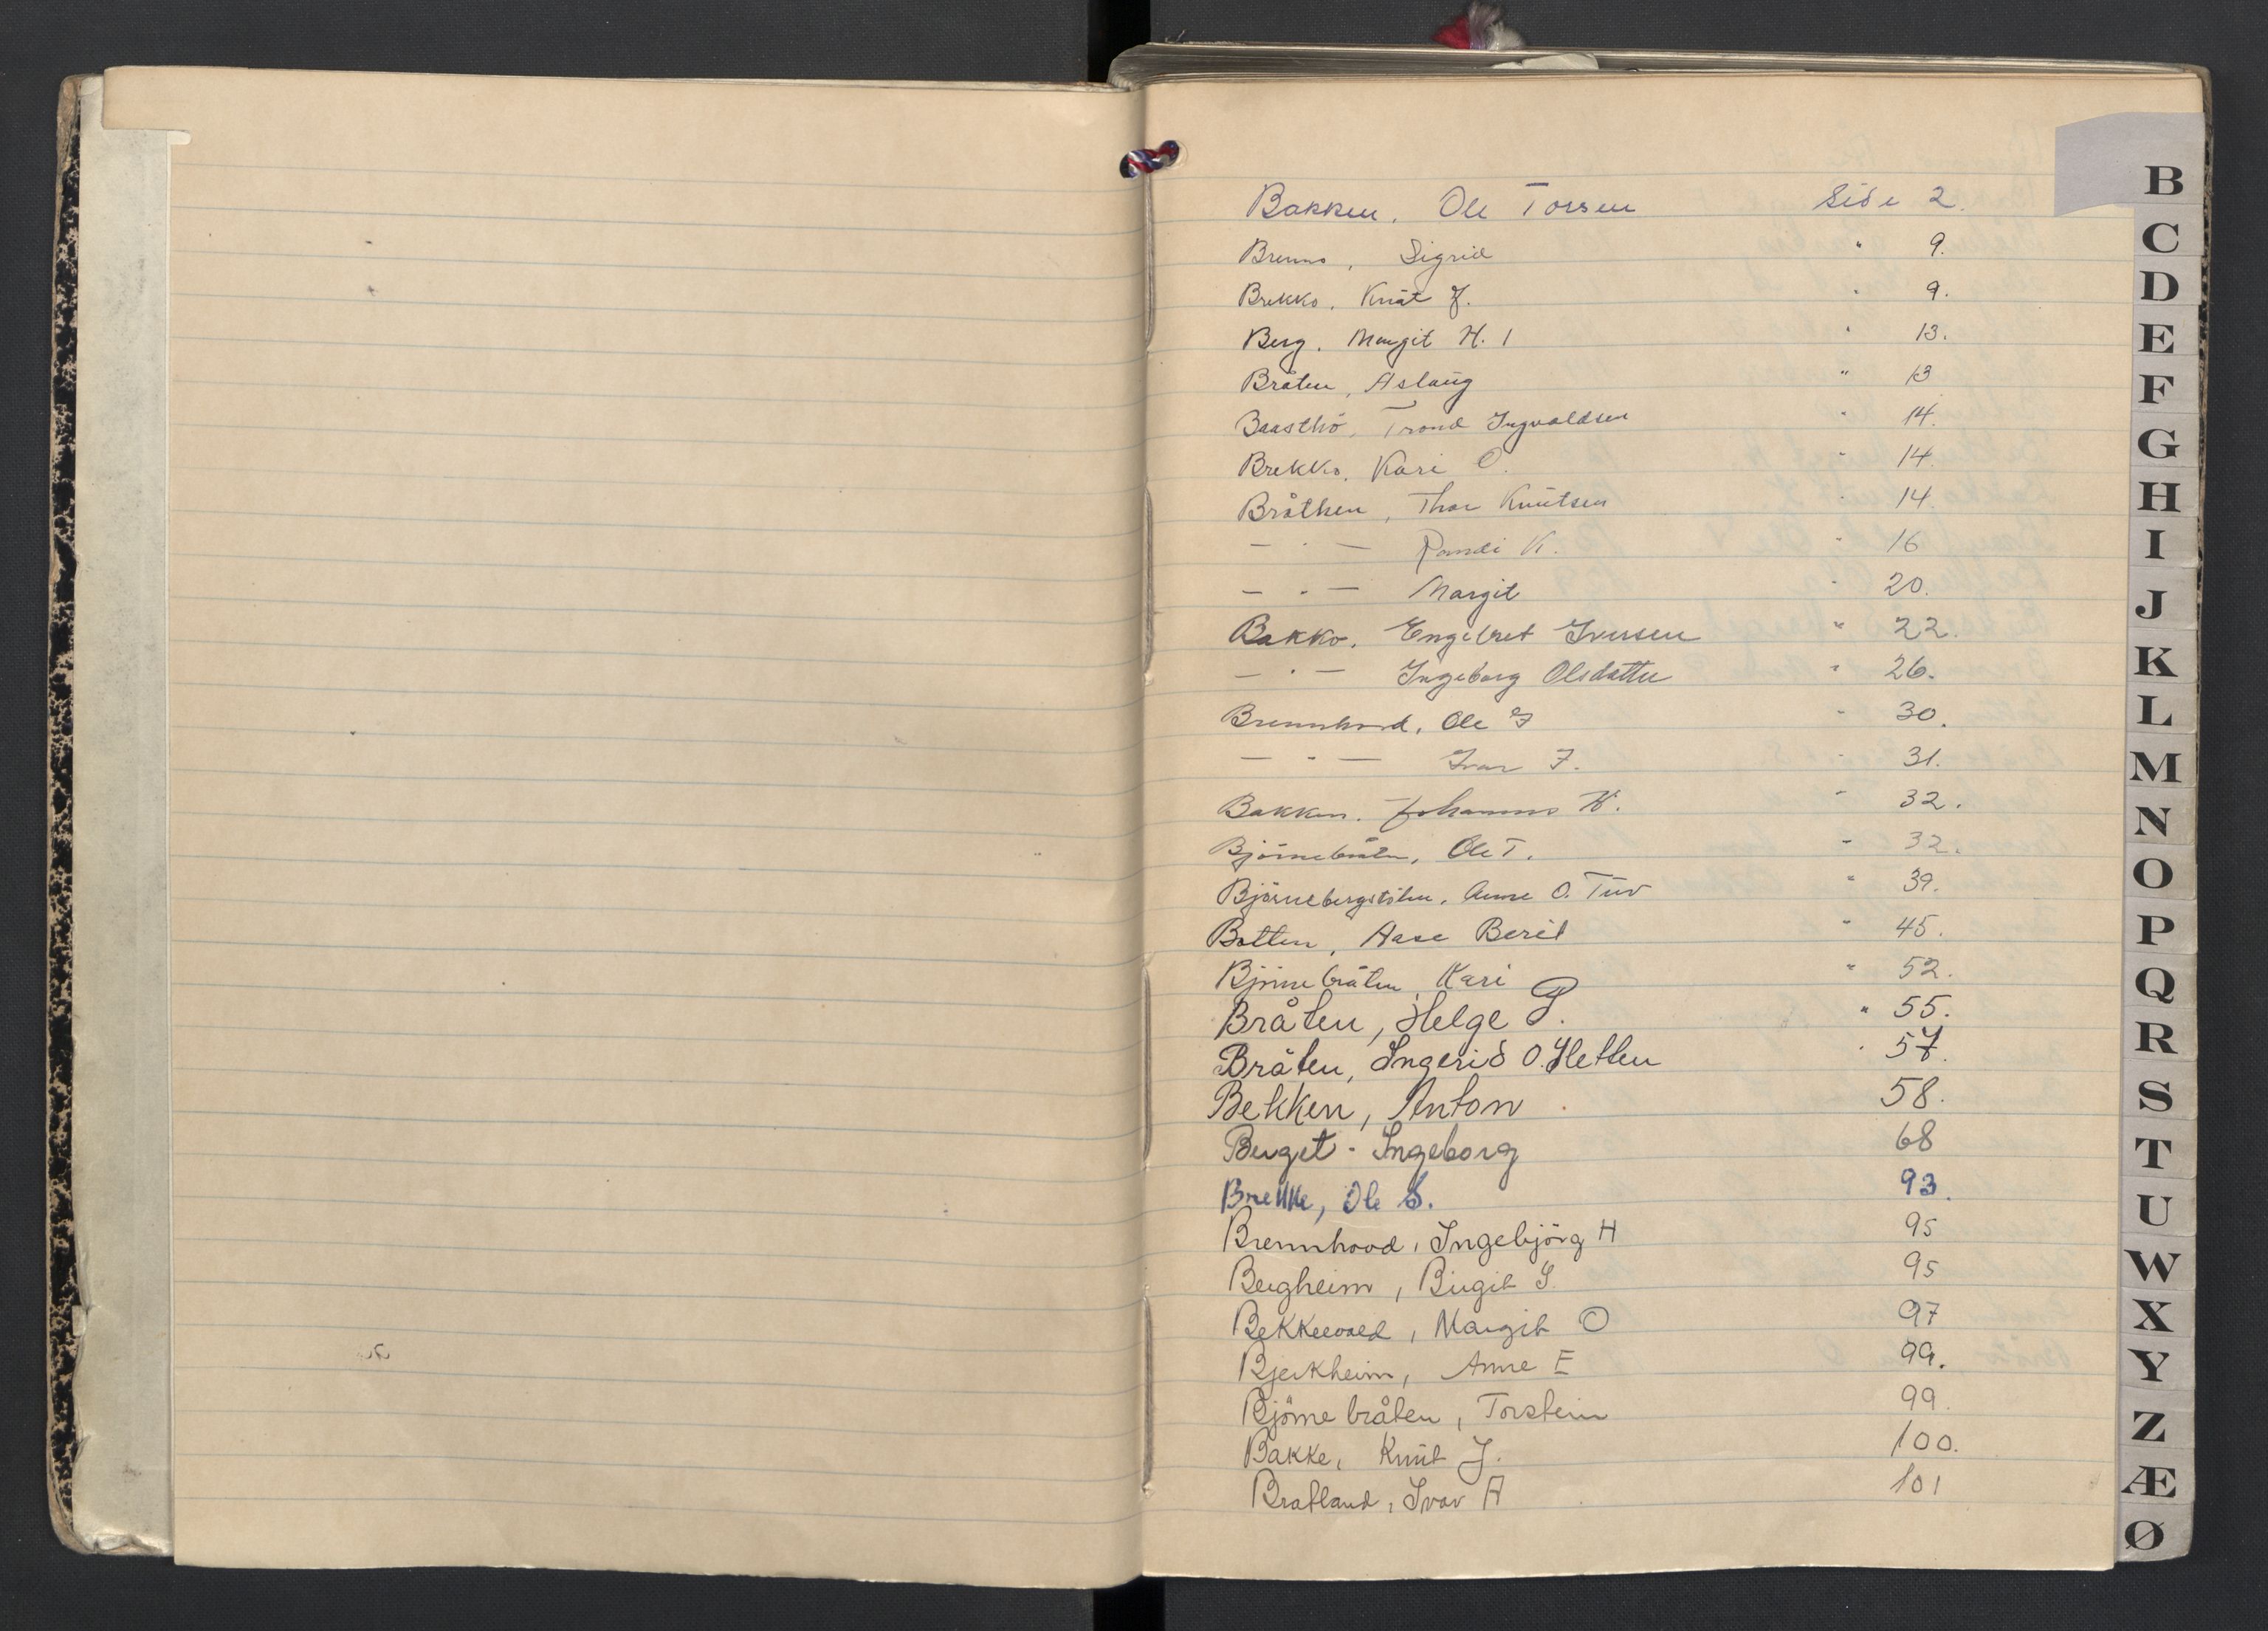 Bakken, Ole Torsen Side 2.
Brenno, Sigrid " 9.
Brekko, Knut J. " 9.
Berg, Margit H. 1 " 13.
Bråten, Aslaug " 13
Baasthö, Trond Ingvaldsen " 14.
Brekko, Kari O. " 14.
Bråthen, Thor Knutsen " 14
— · — Randi K. " 16
— · — Margit " 20.
Bakko, Engebret Iversen " 22.
— · — Ingeborg Olsdatter " 26.
Brennhovd, Ole F " 30.
— · — Ivar F. " 31.
Bakken, Johannes K. " 32.
Björnebråten, Ole T. " 32.
Björnebergstölen, Anne O. Tuv " 39.
Botten, Aase Berit " 45.
Björnebråten, Kari " 52.
Bråten, Helge P. " 55.
Bråten, Ingerid O. Sletten " 57.
Bekken, Anton 58.
Berget - Ingeborg 68
Brekke, Ole S. 93.
Brennhovd, Ingebjörg H 95
Bergheim, Birgit S. 95
Bekkevold, Margit O 97
Bjerkheim, Anne E 99.
Björnebråten, Torstein 99.
Bakke, Knut J. 100.
Bratland, Ivar A 101
B
C
D
E
F
G
H
I
J
K
L
M
N
O
P
Q
R
S
T
U
W
X
Y
Z
Æ
Ø